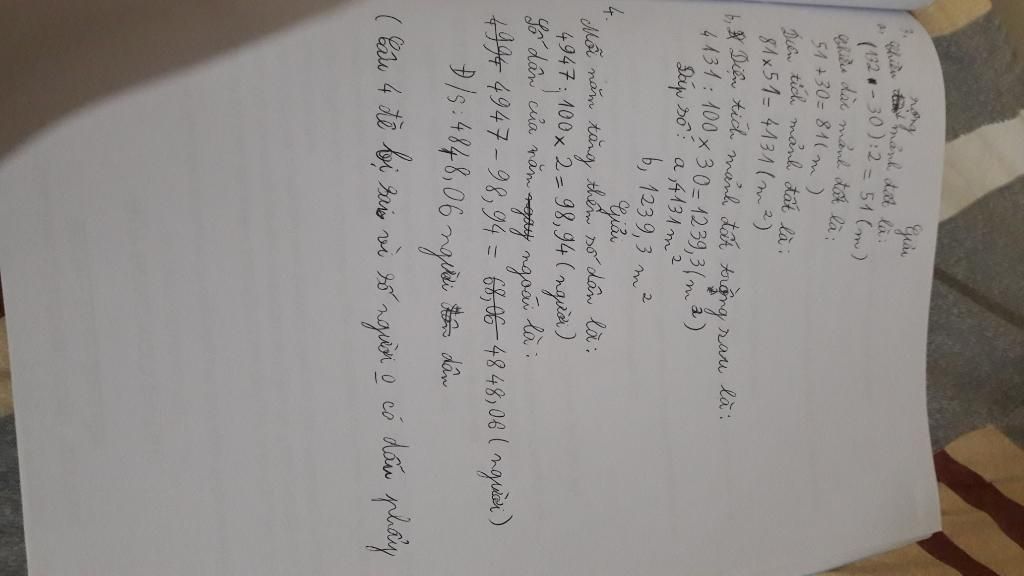 3. Giải
a, Chiều rộng mảnh đất là:
(132 - 30) : 2 = 51 (m)
Chiều dài mảnh đất là:
51 + 30 = 81 (m)
Diện tích mảnh đất là:
81 x 51 = 4131 (m2)
b, Diện tích mảnh đất trồng rau là:
4131 : 100 x 30 = 1239,3 (m2)
Đáp số: a, 4131 m2
b, 1239,3 m2
4. Giải
Mỗi năm tăng thêm số dân là:
4947 : 100 x 2 = 98,94 (người)
Số dân của năm ngoái là:
4947 - 98,94 = 4848,06 (người)
Đ/S: 4848,06 người dân
(Câu 4 đề bị sai vì số người 0 có dấu phẩy